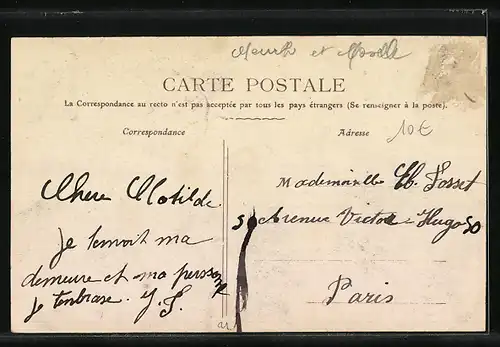 Meurth et Moselle
CARTE POSTALE
La Correspondance au recto n'est pas acceptée par tous les pays étrangers (Se renseigner à la poste).
Correspondance
Adresse
10€
Chere Clotilde
Mademoiselle Cl. Fosset
50 Avenue Victor Hugo 50
Je temoit ma
demeure et ma personne
Je t'embrasse. J. F.
Paris